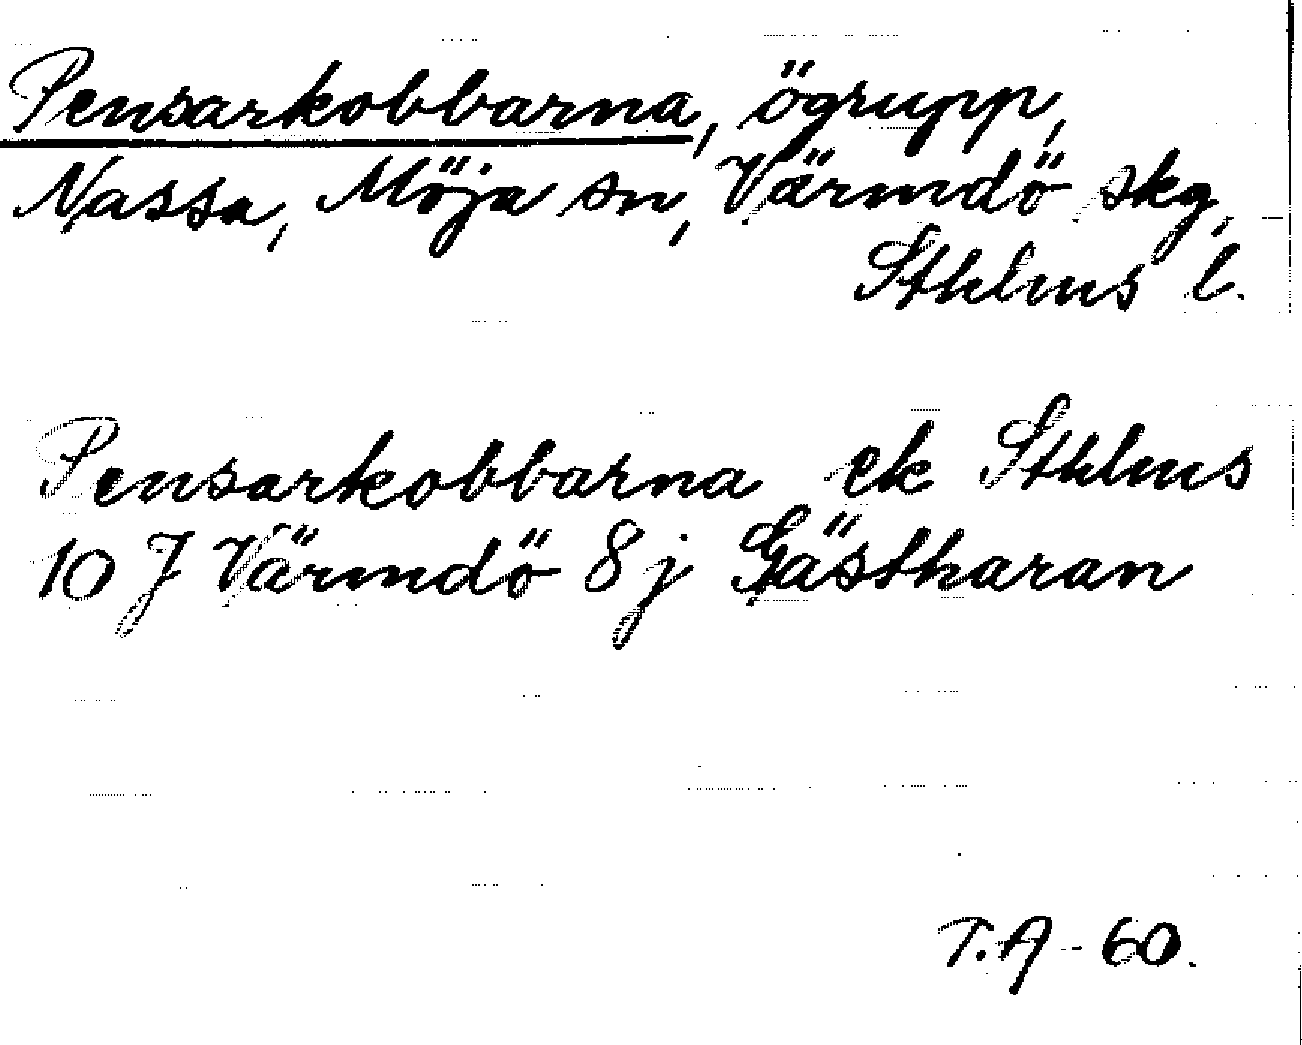 Pensarkobbarna, ögrupp,
Nassa, Möja sn, Värmdö skg,
Sthlms l.
Pensarkobbarna ek Sthlms
10 J Värmdö 8j Gästharan
T.A - 60.